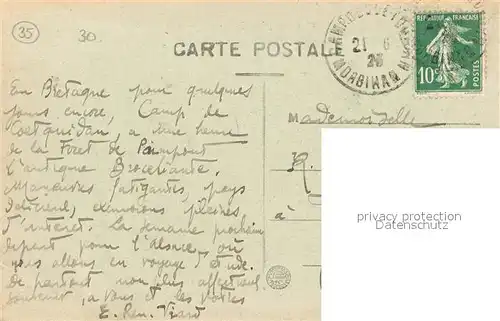 35
30
CARTE POSTALE
21 - 6
23
MORBIHAN
REPUBLIQUE FRANCAISE
10c
POSTES
En Bretagne pour quelques
jours encore, Camp de
Coetquidan, a une heure
de la Foret de Paimpont
l'antique Broceliante.
Manœuvres fatigantes, pays
delicieux, excursions pleines
d'interet. La semaine prochain
depart pour l'Alsace, où
nous allons en voyage d'etude.
De partout mon plus affectueux
souvenir, a vous et les votres
E. Ren. Viard
Mademoiselle
R.
à
privacy protection
Datenschutz